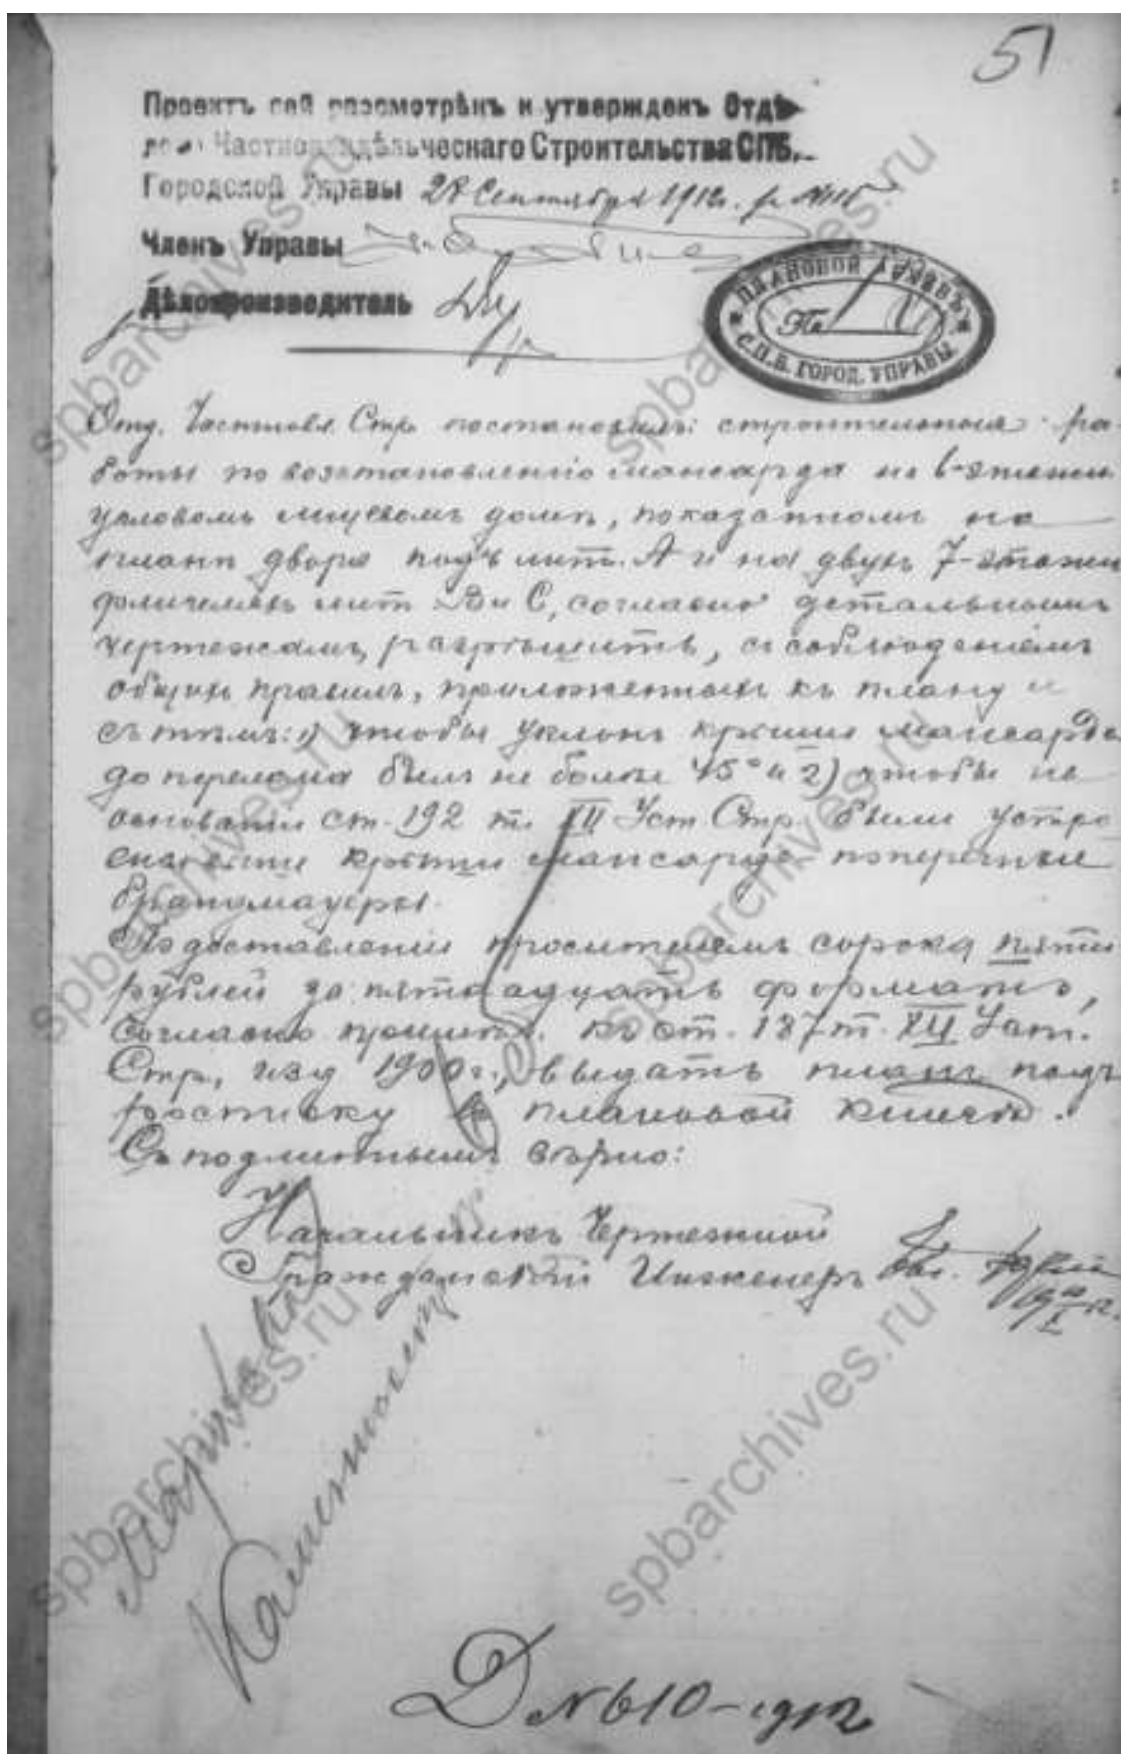 51
Проектъ сей разсмотрѣнъ и утвержденъ Отдѣ-
ломъ Частновладѣльческаго Строительства СПБ.
Городской Управы 28 Сентября 1912г.
Членъ Управы
Дѣлопроизводитель
ПЛАНОВОЙ АРХИВЪ
С.П.Б. ГОРОД. УПРАВЫ
Отд. Частновл. Стр. постановилъ: строительныя ра-
боты по возстановленію мансарда на 6-этажн.
угловомъ лицевомъ домѣ, показанномъ на
планѣ двора подъ лит. А и на двухъ 7-этажн
флигеляхъ лит В и С, согласно детальнымъ
чертежамъ, разрѣшить, съ соблюденіемъ
общихъ правилъ, приложенныхъ къ плану и
съ тѣмъ: 1) чтобы уклонъ крыши мансарда
до перелома былъ не болѣе 45° и 2) чтобы на
основаніи ст. 192 т. XII Уст. Стр. были устро
ены крыши мансарда поперечные
брандмауеры.
По доставленіи просителемъ сорока пяти
рублей за пятнадцать форматъ,
согласно примѣч. къ ст. 187 т. XII Уст.
Стр., изд 1900 г., выдать планъ подъ
росписку въ плановой книгѣ.
Съ подлиннымъ вѣрно:
Начальникъ Чертежной
Гражданскій Инженеръ
Д №610-1912
spbarchives.ru
spbarchives.ru
spbarchives.ru
spbarchives.ru
spbarchives.ru
spbarchives.ru